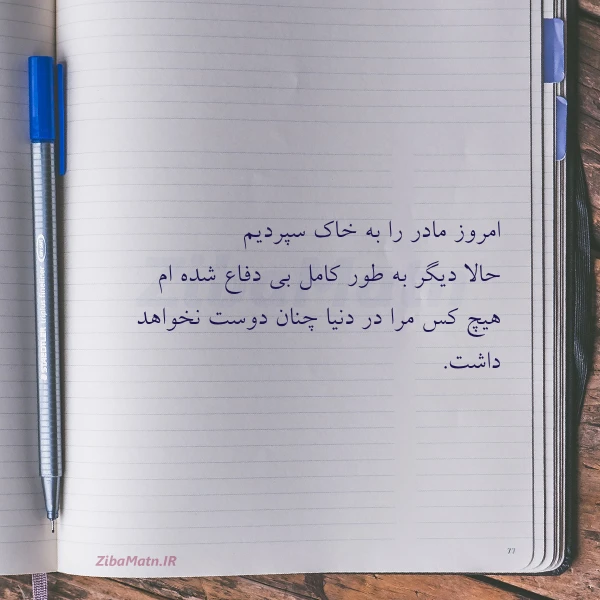 امروز مادر را به خاک سپردیم
حالا دیگر به طور کامل بی دفاع شده ام
هیچ کس مرا در دنیا چنان دوست نخواهد
داشت.
77
ZibaMatn.IR